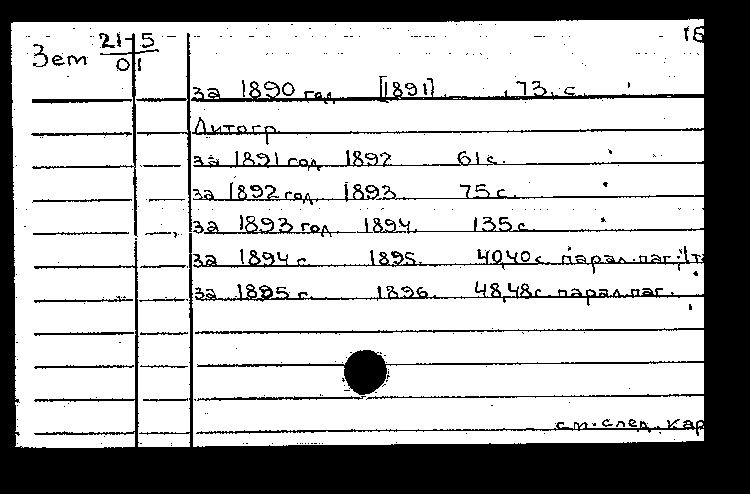 Зет 21-5
01
за 1890 год [1891] , 73. с.
Литогр.
за 1891 год 1892 61 с.
за 1892 год 1893 75 с.
за 1893 год. 1894. 135 с.
за 1894 г. 1895. 40,40 с. парал. паг.;
за 1895 г. 1896. 48,48 с. парал. паг.
см. след. кар